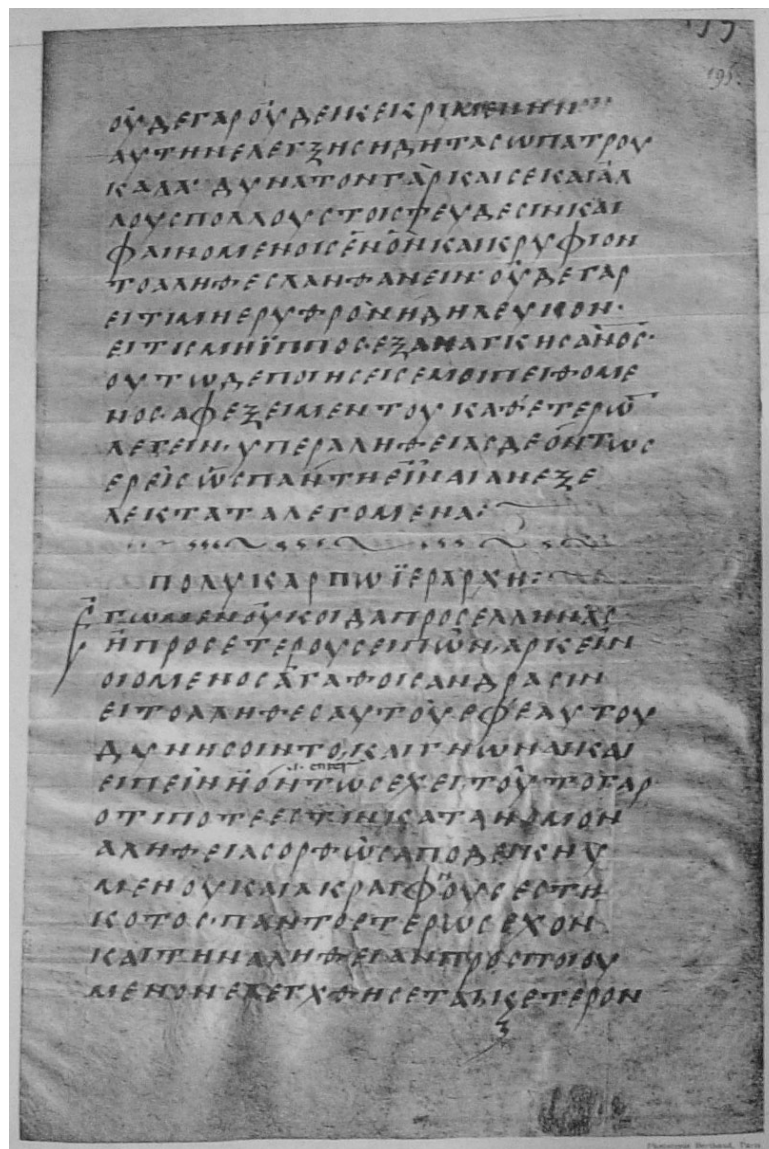 195.
ΟΥΔΕΓΑΡΟΥΔΕΝΚΕΚΡΙ
ΑΥΤΗΝΕΛΕΓΞΗΣΗΔΗΤΑΣΩΠΑΤΡΟΥ
ΚΑΛΑ· ΔΥΝΑΤΟΝΓΑΡΚΑΙΣΕΚΑΙΑΛ
ΛΟΥΣΠΟΛΛΟΥΣΤΟΙΣΨΕΥΔΕΣΙΝΚΑΙ
ΦΑΙΝΟΜΕΝΟΙΣΕΝΟΝΚΑΙΚΡΥΦΙΟΝ
ΤΟΑΛΗΘΕΣΛΑΝΘΑΝΕΙΝ· ΟΥΔΕΓΑΡ
ΕΙΤΙΜΗΕΡΥΘΡΟΝΗΔΗΛΕΥΚΟΝ·
ΕΙΤΙΣΜΗΪΠΠΟΣ·ΕΞΑΝΑΓΚΗΣΑΝΟΣ·
ΟΥΤΩΔΕΠΟΙΗΣΕΙΣΕΜΟΙΠΕΙΘΟΜΕ
ΝΟΣ·ΑΦΕΞΕΙΜΕΝΤΟΥΚΑΘΕΤΕΡΩΝ
ΛΕΓΕΙΝ·ΥΠΕΡΑΛΗΘΕΙΑΣΔΕΟΝΤΩΣ
ΕΡΕΙΣΩΣΠΑΝΤΗΕΙΝΑΙΑΝΕΞΕ
ΛΕΚΤΑΤΑΛΕΓΟΜΕΝΑ:
ΠΟΛΥΚΑΡΠΩΪΕΡΑΡΧΗ:
ΕΓΩΜΕΝΟΥΚΟΙΔΑΠΡΟΣΕΛΛΗΝΑΣ
ΗΠΡΟΣΕΤΕΡΟΥΣΕΙΠΩΝ·ΑΡΚΕΙΝ
ΟΙΟΜΕΝΟΣΑΓΑΘΟΙΣΑΝΔΡΑΣΙΝ
ΕΙΤΟΑΛΗΘΕΣΑΥΤΟΕΦΕΑΥΤΟΥ
ΔΥΝΗΣΟΙΝΤΟ·ΚΑΙΓΝΩΝΑΙΚΑΙ
ΕΙΠΕΙΝΗΟΝΤΩΣΕΧΕΙΤΟΥΤΟΓΑΡ
ΟΤΙΠΟΤΕΕΣΤΙΝΚΑΤΑΝΟΜΟΝ
ΑΛΗΘΕΙΑΣΟΡΘΩΣΑΠΟΔΕΙΚΝΥ
ΜΕΝΟΥΚΑΙΑΚΡΑΙΦΝΟΥΣΕΣΤΗ
ΚΟΤΟΣ·ΠΑΝΤΟΕΤΕΡΩΣΕΧΟΝ
ΚΑΙΤΗΝΑΛΗΘΕΙΑΝΠΡΟΣΠΟΙΟΥ
ΜΕΝΟΝΕΛΕΓΧΘΗΣΕΤΑΙΚΕΤΕΡΟΝ